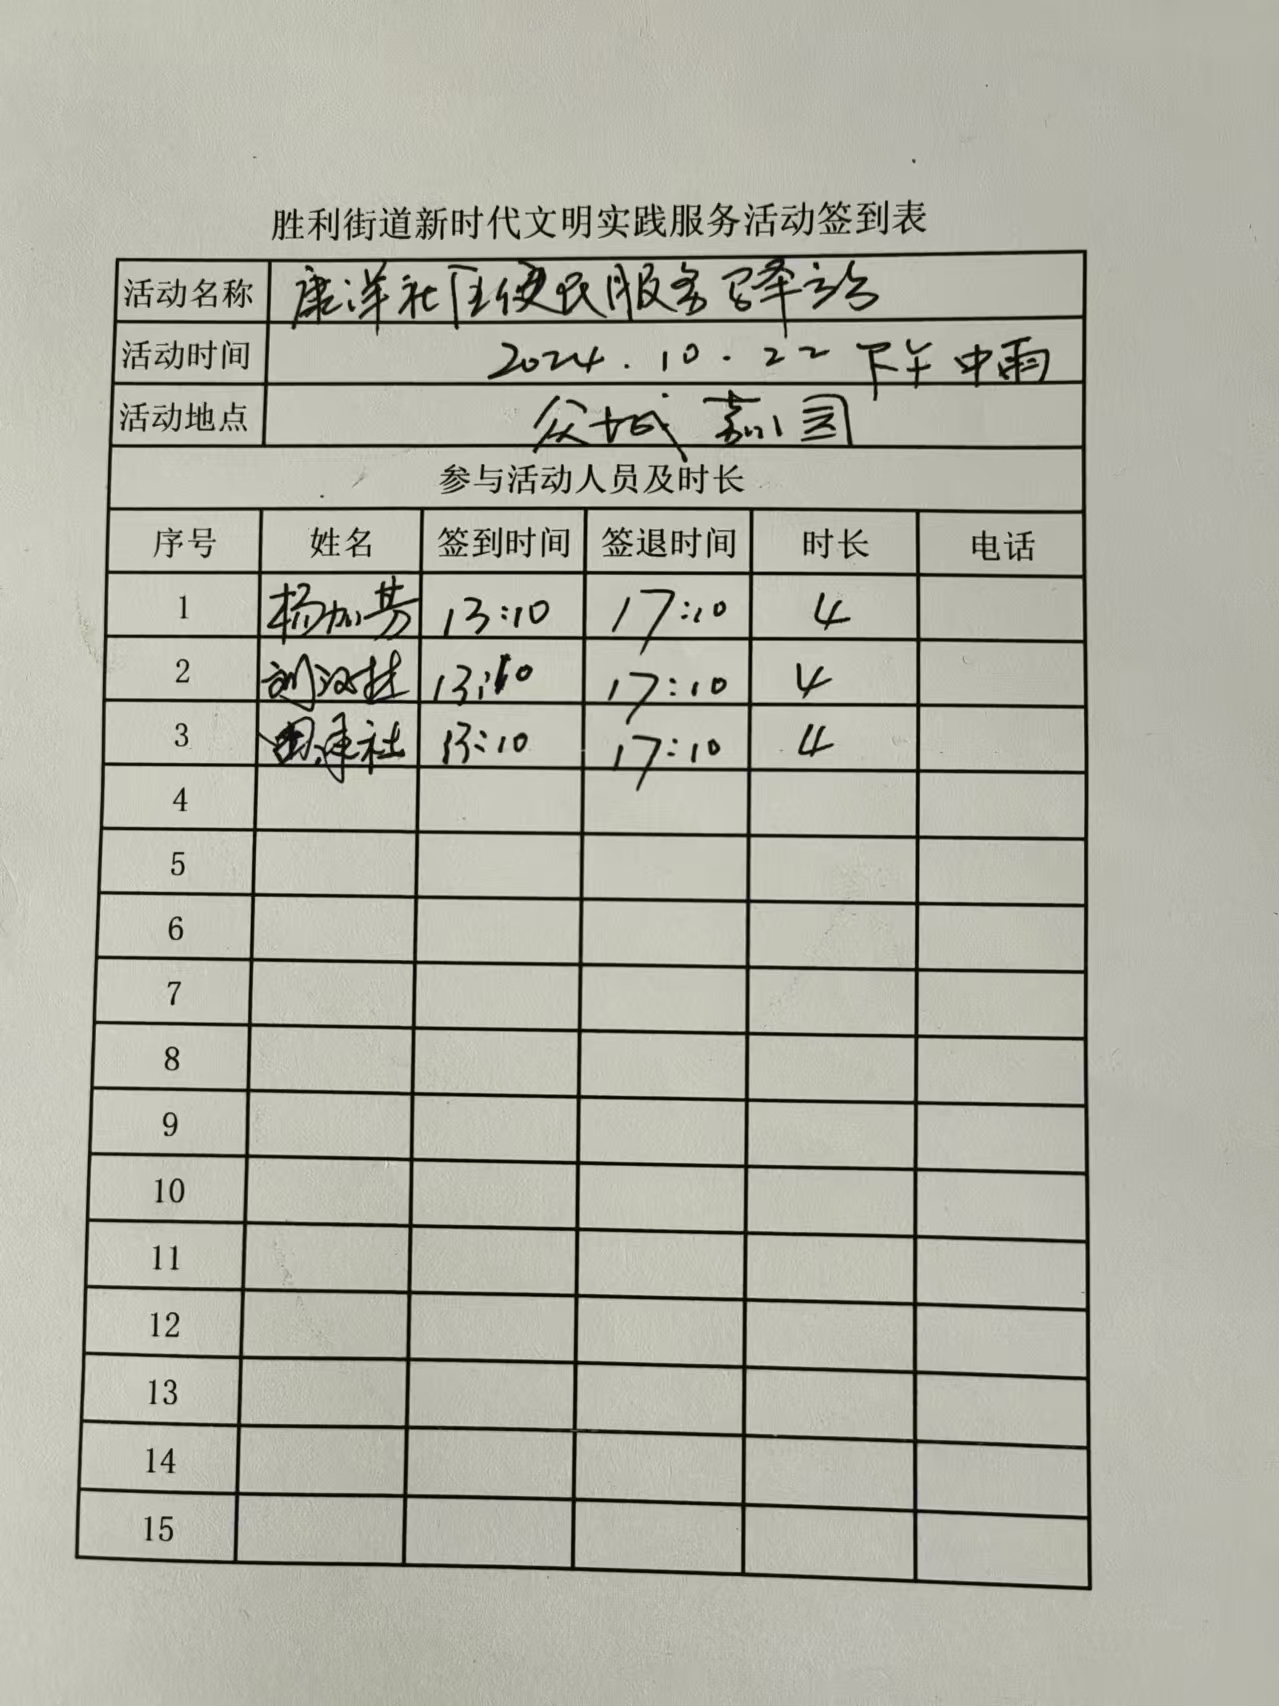 胜利街道新时代文明实践服务活动签到表
活动名称 康洋社区便民服务驿站
活动时间 2024.10.22 下午 中雨
活动地点 众城嘉园
参与活动人员及时长
序号 姓名 签到时间 签退时间 时长 电话
1 杨加芳 13:10 17:10 4
2 刘汉桂 13:10 17:10 4
3 社 13:10 17:10 4
4
5
6
7
8
9
10
11
12
13
14
15